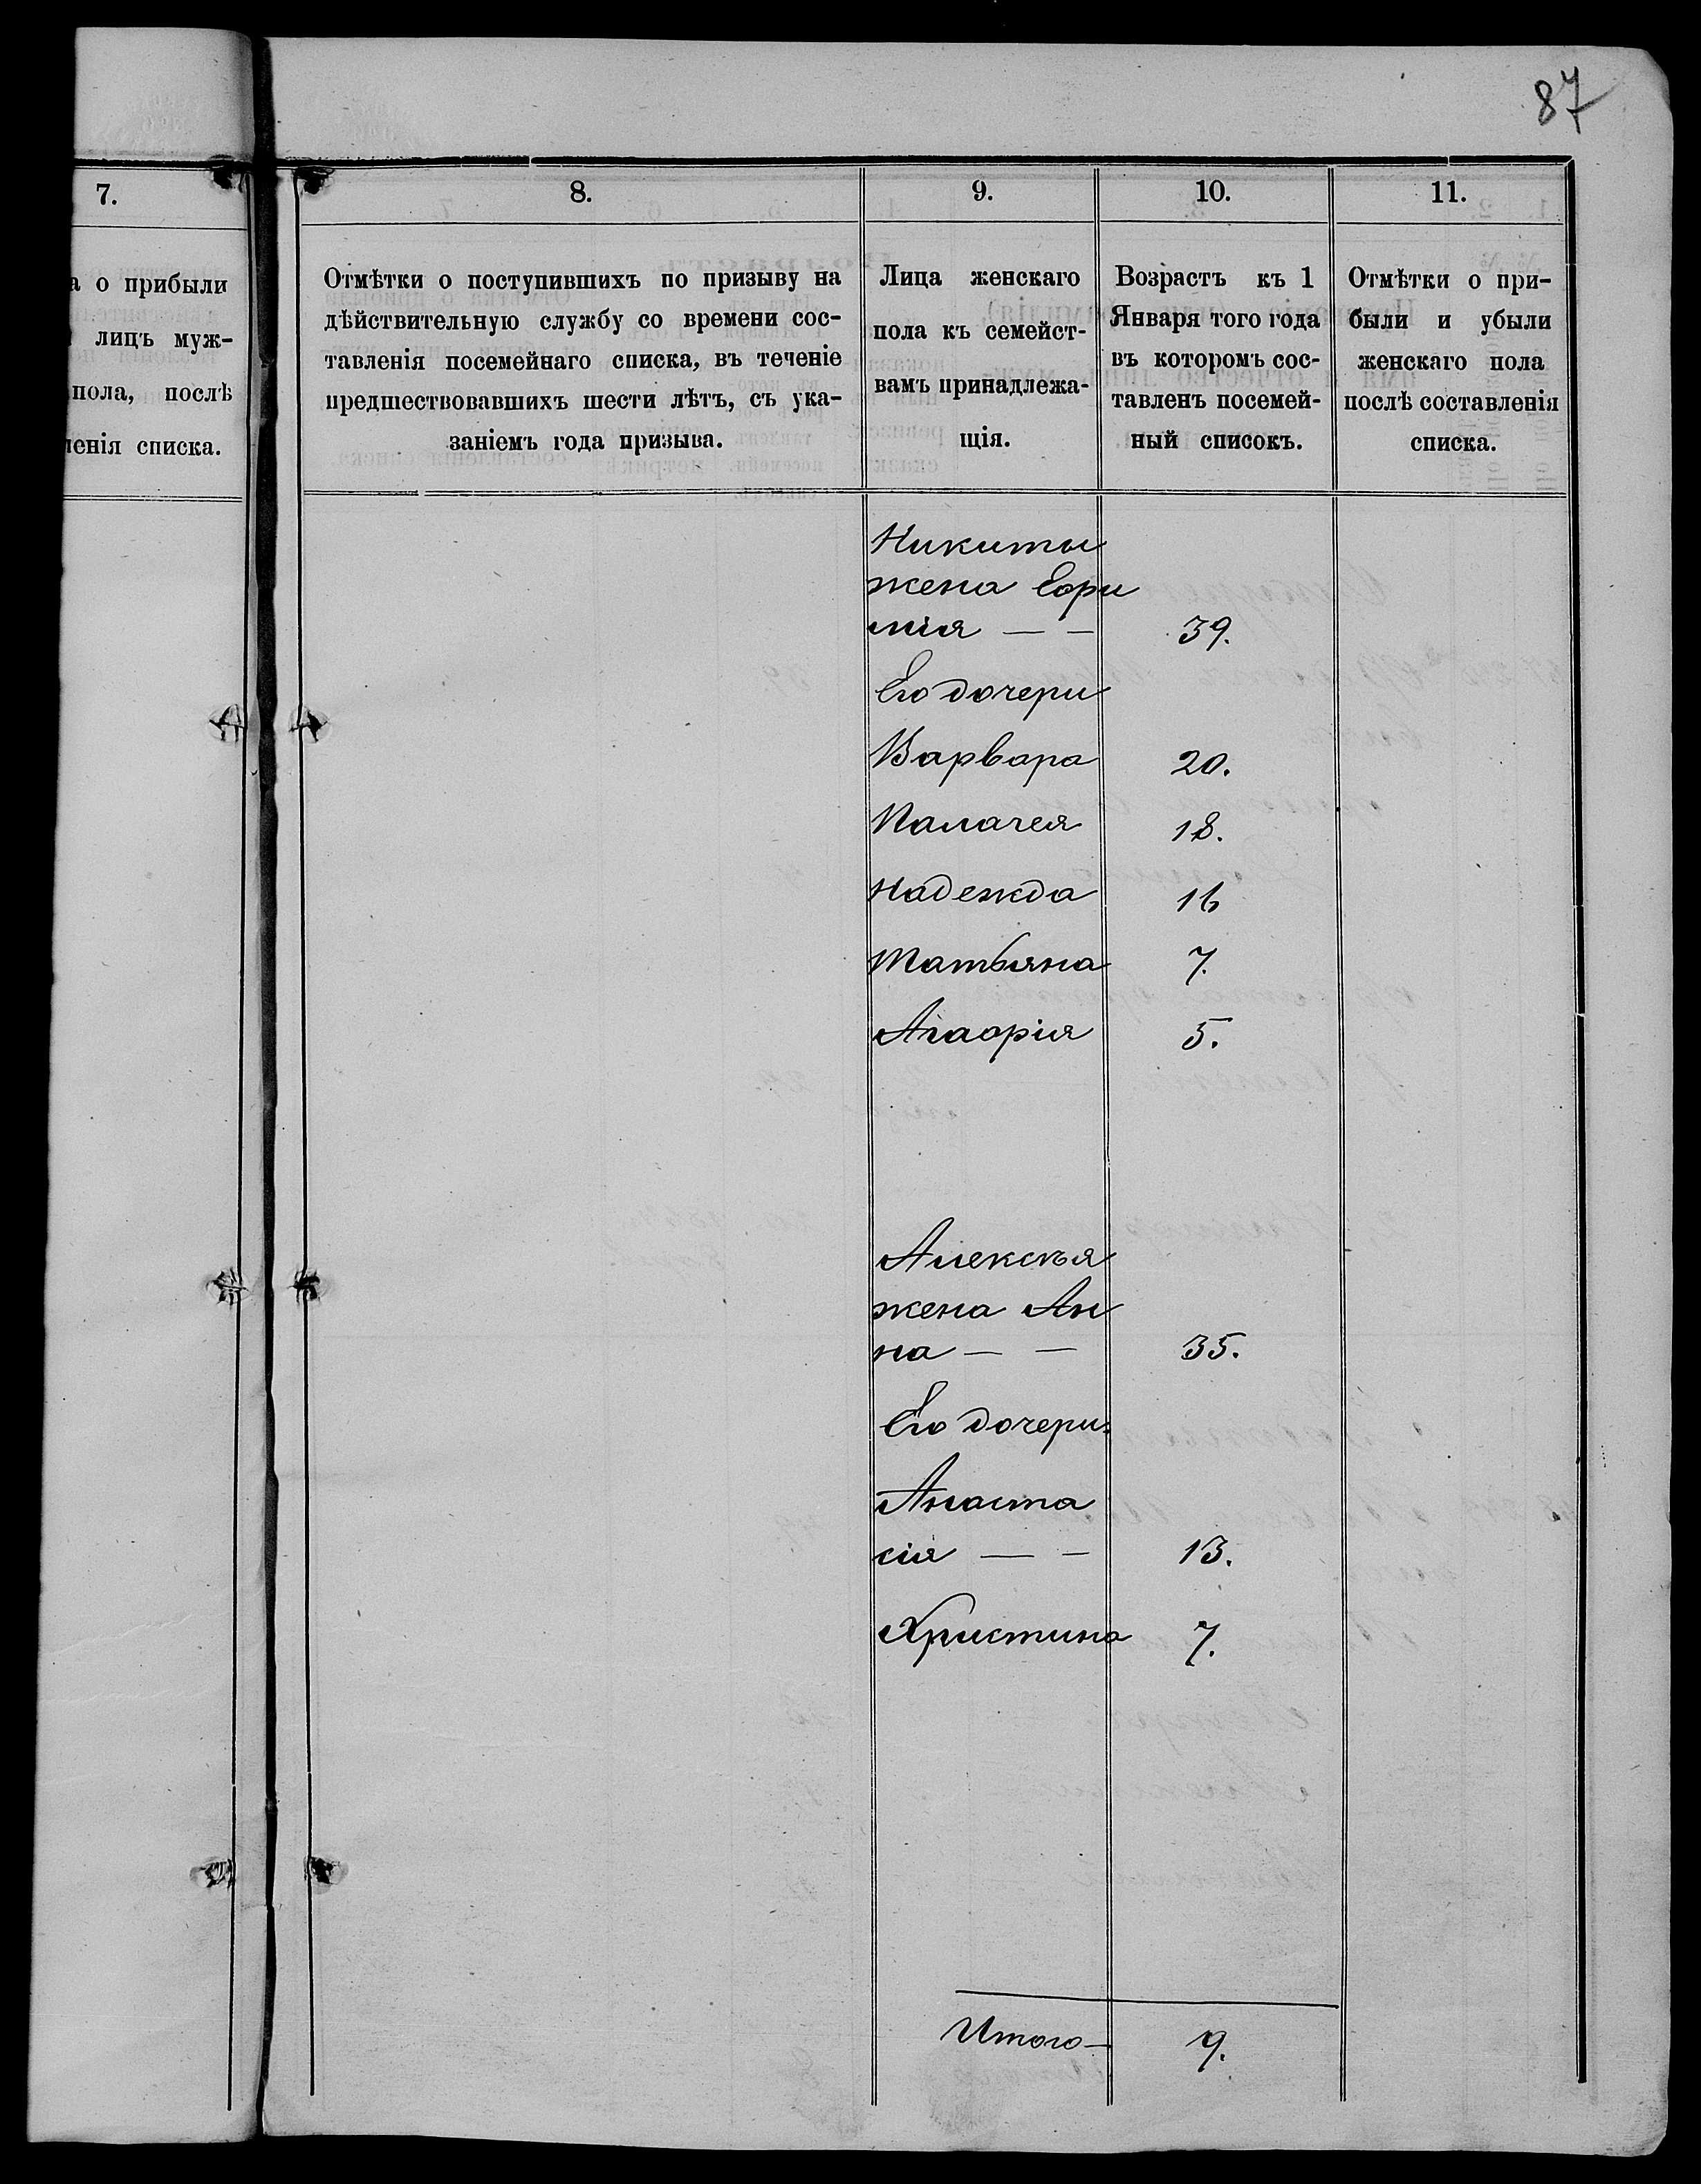 87
7.
а о прибыли
лицъ муж-
пола, послѣ
ленія списка.
8.
Отмѣтки о поступившихъ по призыву на
дѣйствительную службу со времени сос-
тавленія посемейнаго списка, въ теченіе
предшествовавшихъ шести лѣтъ, съ ука-
заніемъ года призыва.
9.
Лица женскаго
пола къ семейст-
вамъ принадлежа-
щія.
10.
Возрастъ къ 1
Января того года
въ которомъ сос-
тавленъ посемей-
ный списокъ.
11.
Отмѣтки о при-
были и убыли
женскаго пола
послѣ составленія
списка.
Никиты
жена Ефи
мія — — 39.
Его дочери
Варвара 20.
Палагея 18.
Надежда 16
Татьяна 7.
Агафія 5.
Алексѣя
жена Ан
на — — 35.
Его дочери:
Анаста
сія — — 13.
Христина 7.
Итого — 9.